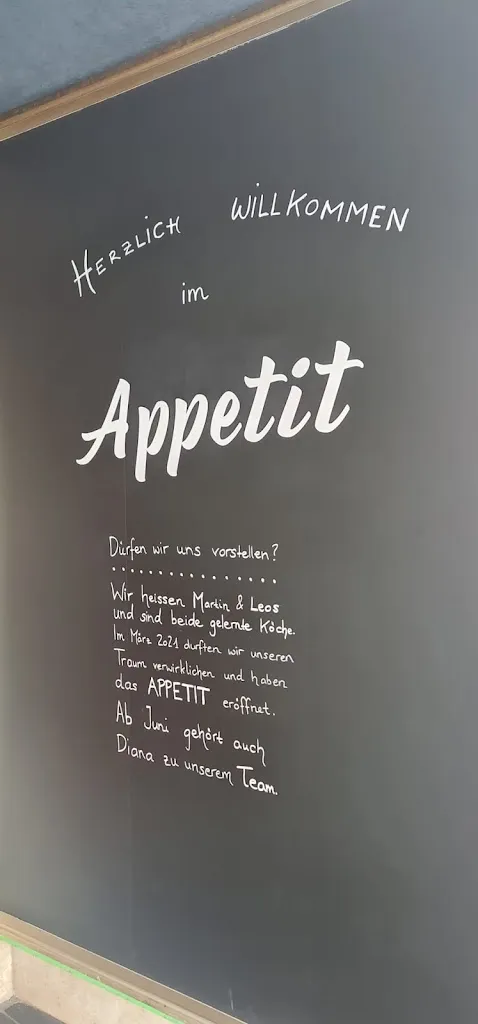 HERZLICH WILLKOMMEN
im
Appetit
Dürfen wir uns vorstellen?
Wir heissen Martin & Leos
und sind beide gelernte Köche.
Im März 2021 durften wir unseren
Traum verwirklichen und haben
das APPETIT eröffnet.
Ab Juni gehört auch
Diana zu unserem Team.